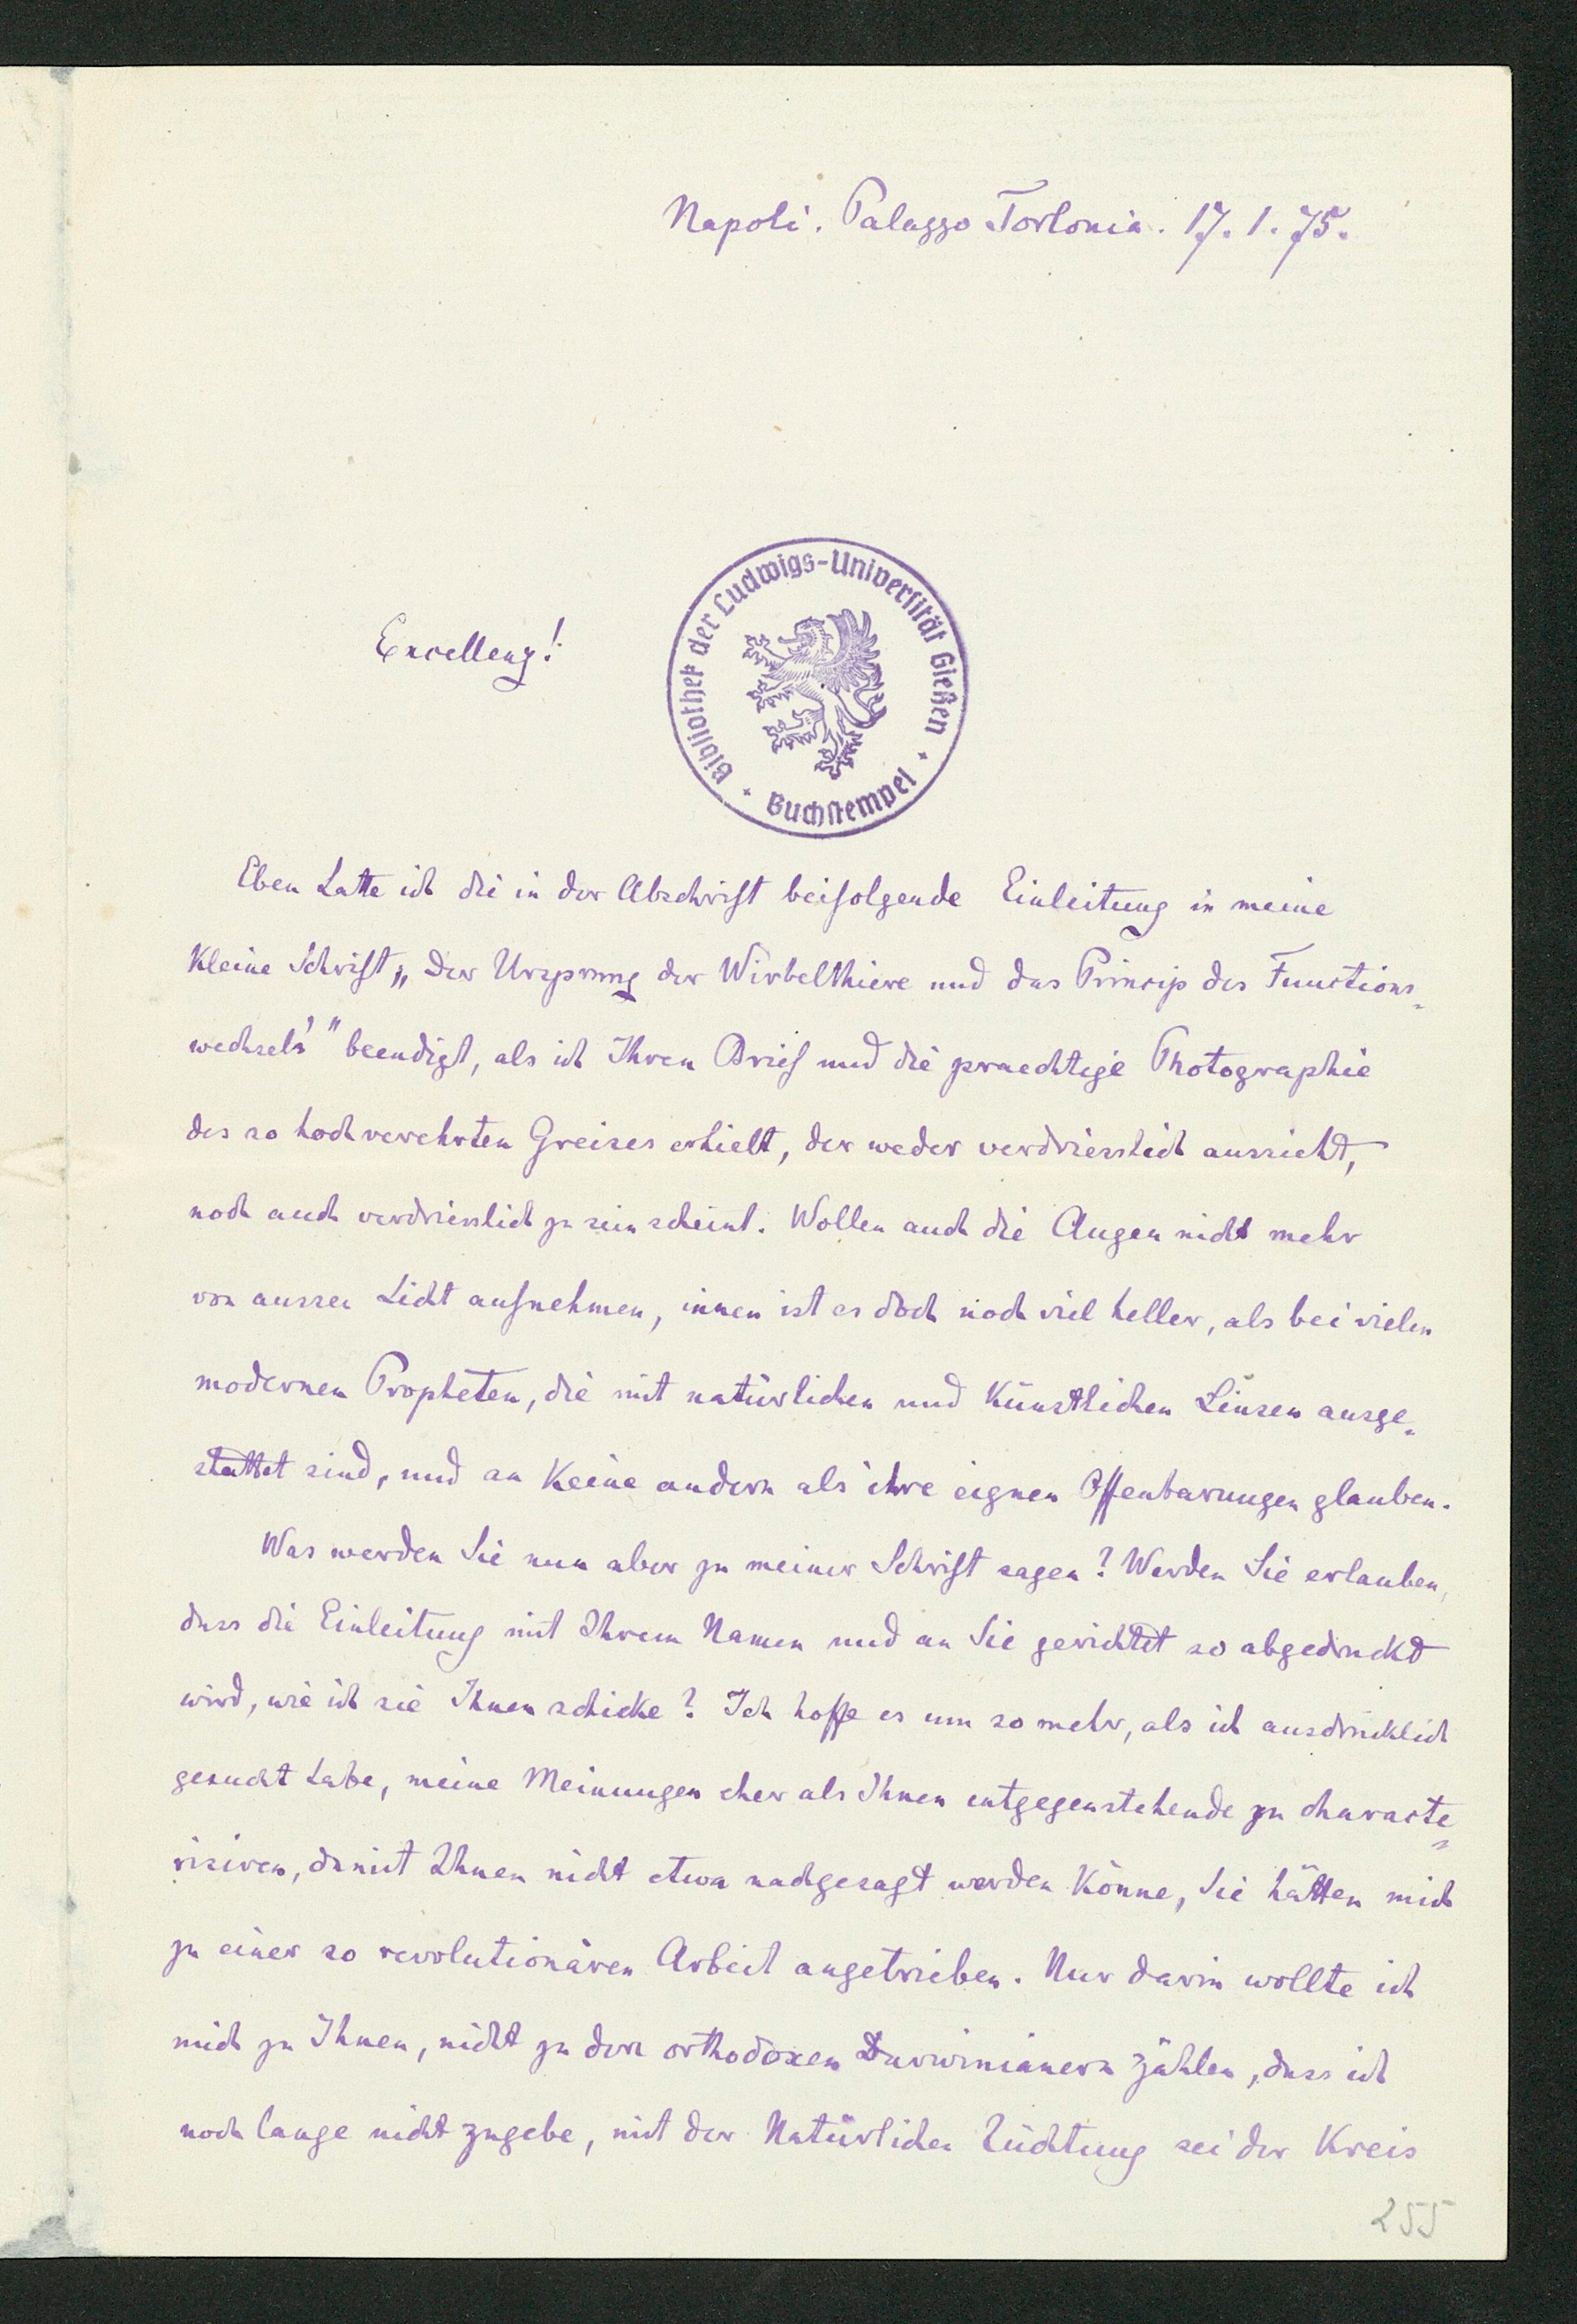 Napoli. Palazzo Torlonia. 17. 1. 75.
Excellenz!
Bibliothek der Ludwigs-Universität Gießen
Buchstempel
Eben hatte ich die in der Abschrift beifolgende Einleitung in meine
kleine Schrift „Der Ursprung der Wirbelthiere und das Princip des Functions-
wechsels" beendigt, als ich Ihren Brief und die praechtige Photographie
des so hochverehrten Greises erhielt, der weder verdriesslich aussieht,
noch auch verdriesslich zu sein scheint. Wollen auch die Augen nicht mehr
von aussen Licht aufnehmen, innen ist es doch noch viel heller, als bei vielen
modernen Propheten, die mit natürlichen und künstlichen Linsen ausge-
stattet sind, und an keine andern als ihre eignen Offenbarungen glauben.
Was werden Sie nun aber zu meiner Schrift sagen? Werden Sie erlauben,
dass die Einleitung mit Ihrem Namen und an Sie gerichtet so abgedruckt
wird, wie ich sie Ihnen schicke? Ich hoffe es um so mehr, als ich ausdrücklich
gesucht habe, meine Meinungen eher als Ihnen entgegenstehende zu characte-
risiren, damit Ihnen nicht etwa nachgesagt werden könne, Sie hätten mich
zu einer so revolutionären Arbeit angetrieben. Nur darin wollte ich
mich zu Ihnen, nicht zu den orthodoxen Darwinianern zählen, dass ich
noch lange nicht zugebe, mit der Natürlichen Züchtung sei der Kreis
255